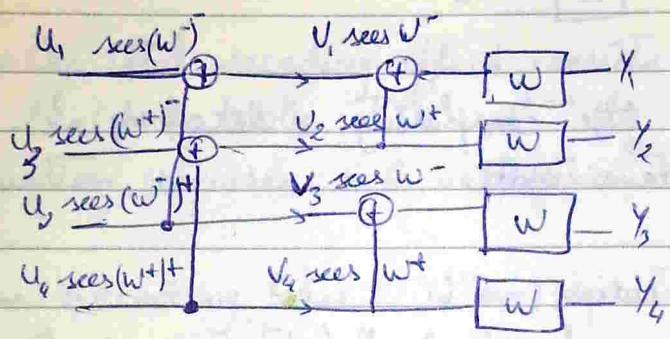 U₁ sees (W⁻)⁻ V₁ sees W⁻ W Y₁
U₂ sees (W⁺)⁻ V₂ sees W⁺ W Y₂
U₃ sees (W⁻)⁺ V₃ sees W⁻ W Y₃
U₄ sees (W⁺)⁺ V₄ sees W⁺ W Y₄